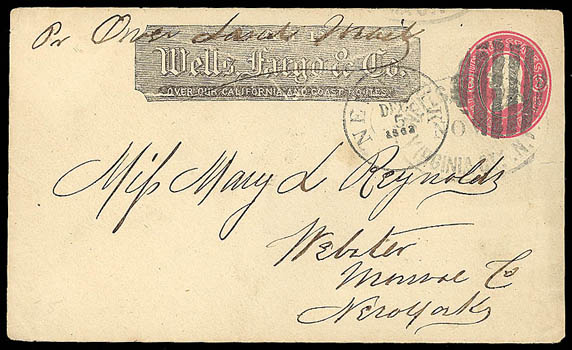 Pr Over Land Mail
Wells Fargo & Co.
OVER OUR CALIFORNIA AND COAST ROUTES.
NEW
DEC
5
1862
VIRGINIA
Miss Mary L Reynolds
Webster
Monroe Co
New York